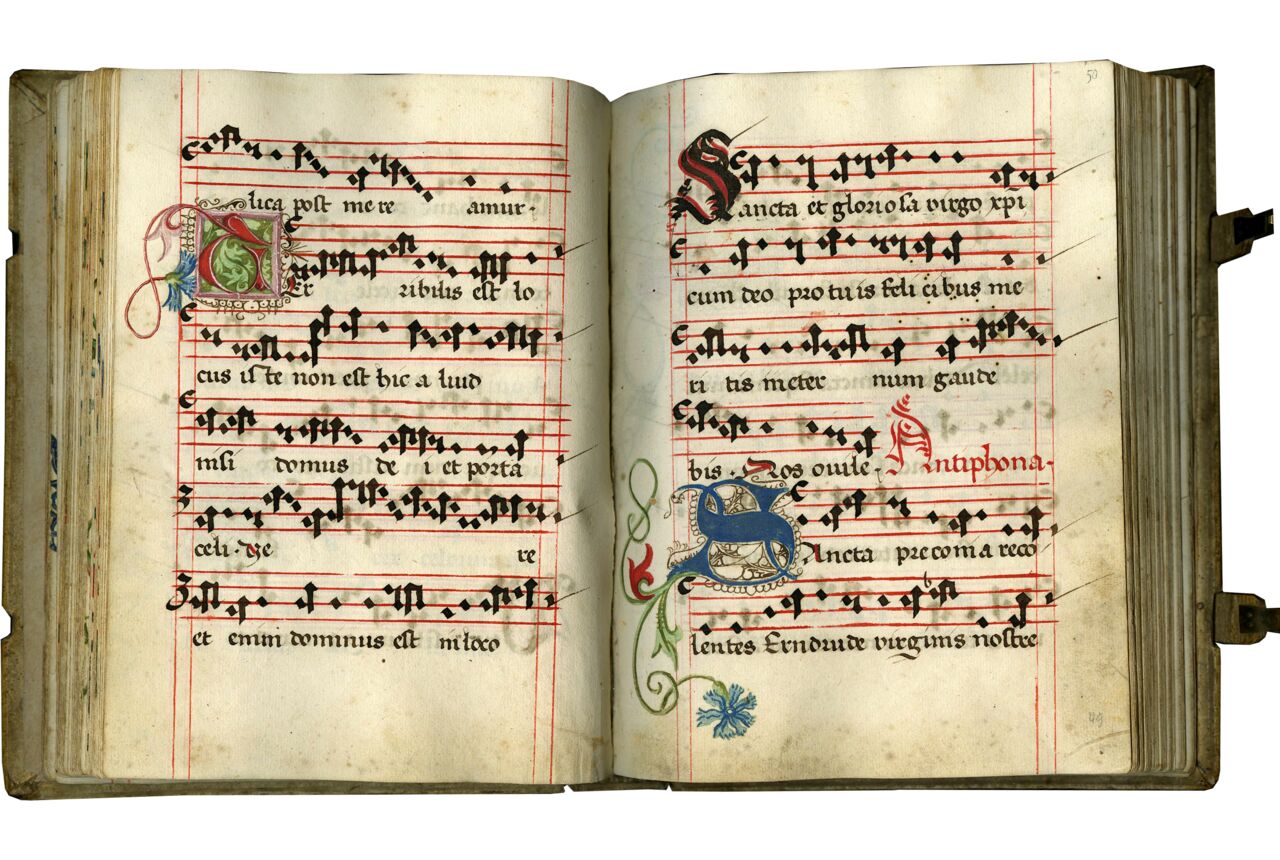 lica post mere amur.
Terribilis est lo
cus iste non est hic aliud
nisi domus dei et porta
celi. Ve re
et enim dominus est in loco
50
Sancta et gloriosa virgo xpi
cum deo pro tuis felicibus me
ritis meter num gaude
bis. Nos ovile. Antiphona.
Sancta preconia reco
lentes Erndrude virginis nostre
49